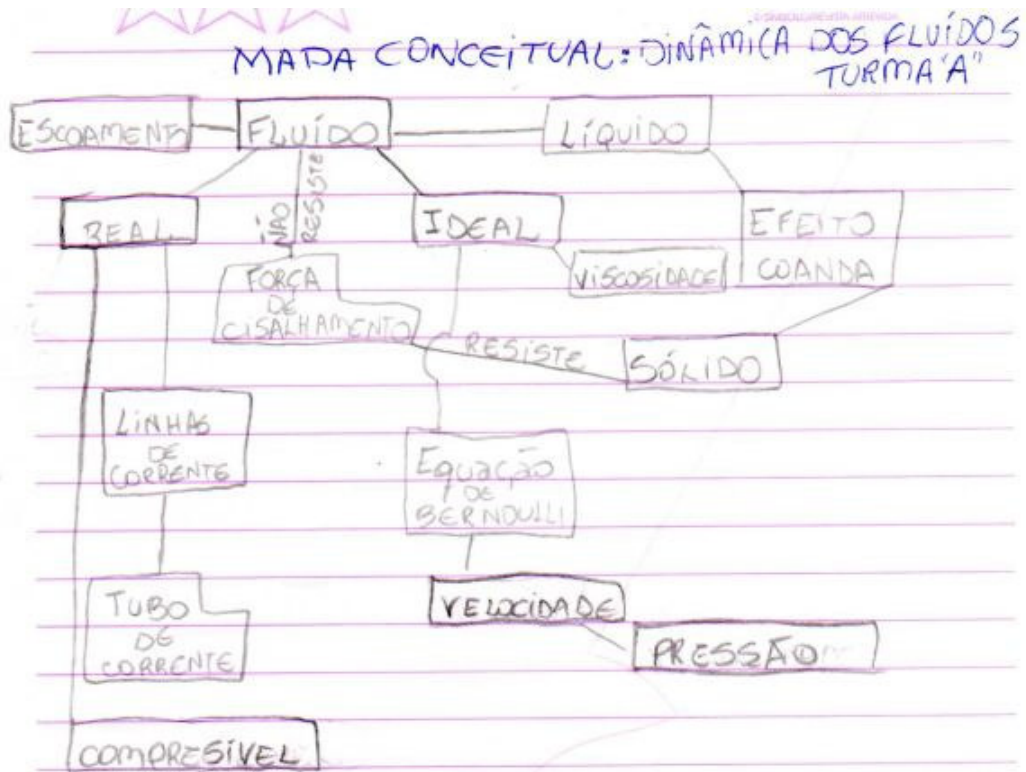 MAPA CONCEITUAL: DINÂMICA DOS FLUÍDOS
TURMA "A"
ESCOAMENTO
FLUÍDO
LÍQUIDO
NÃO
RESISTE
REAL
IDEAL
EFEITO
COANDA
VISCOSIDADE
FORÇA
DE
CISALHAMENTO
RESISTE
SÓLIDO
LINHAS
DE
CORRENTE
EQUAÇÃO
DE
BERNOULLI
TUBO
DE
CORRENTE
VELOCIDADE
PRESSÃO
COMPRESÍVEL